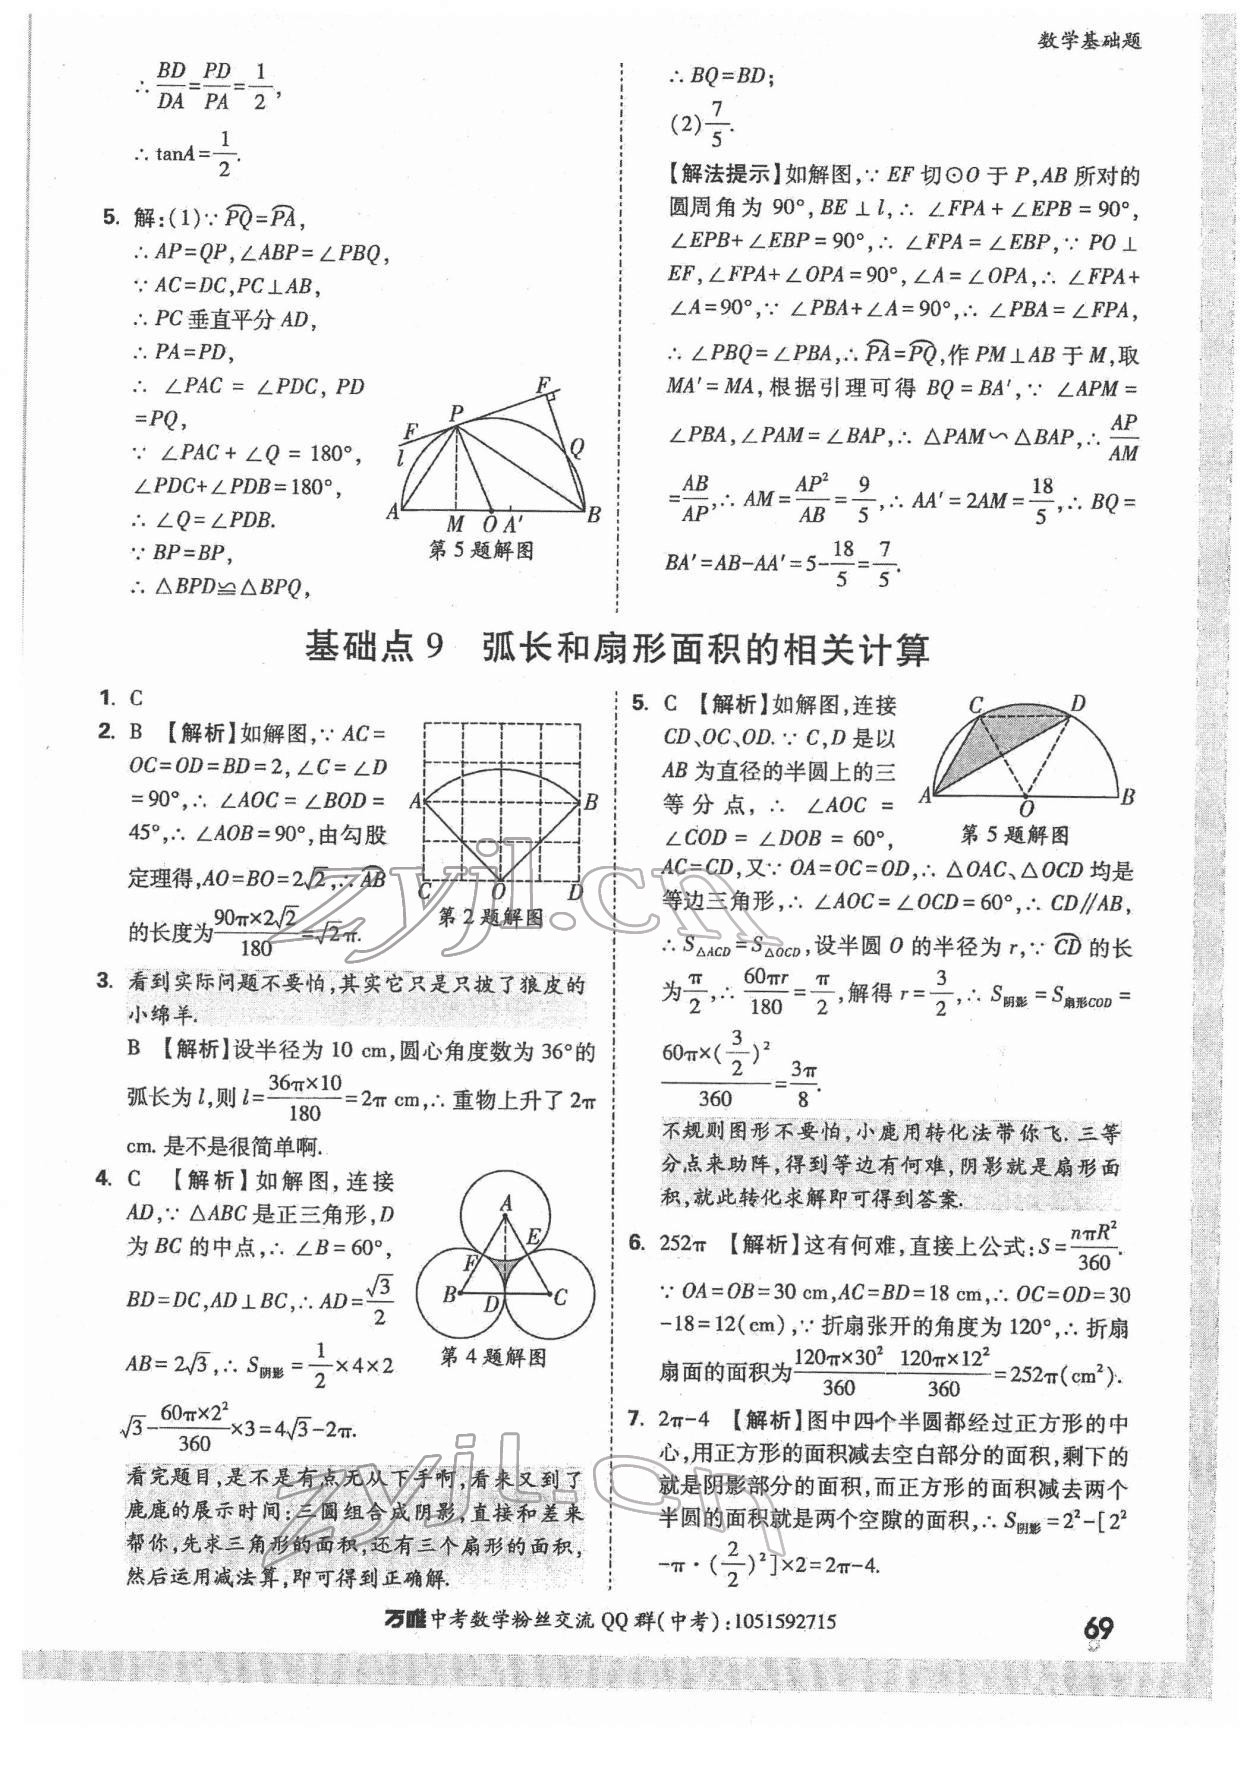 数学基础题
∴ BD/DA=PD/PA=1/2,
∴ tanA=1/2.
5. 解:(1)∵ PQ=PA,
∴ AP=QP,∠ABP=∠PBQ,
∵ AC=DC,PC⊥AB,
∴ PC垂直平分AD,
∴ PA=PD,
∴ ∠PAC = ∠PDC, PD
=PQ,
∵ ∠PAC+∠Q=180°,
∠PDC+∠PDB=180°,
∴ ∠Q=∠PDB.
∵ BP=BP,
∴ △BPD≌△BPQ,
F
l
P
E
Q
A
M
O
A′
B
第5题解图
∴ BQ=BD;
(2)7/5.
【解法提示】如解图,∵ EF切⊙O于P,AB所对的
圆周角为90°,BE⊥l,∴ ∠FPA+∠EPB=90°,
∠EPB+∠EBP=90°,∴ ∠FPA=∠EBP,∵ PO⊥
EF,∠FPA+∠OPA=90°,∠A=∠OPA,∴ ∠FPA+
∠A=90°,∵ ∠PBA+∠A=90°,∴ ∠PBA=∠FPA,
∴ ∠PBQ=∠PBA,∴ PA=PQ,作PM⊥AB于M,取
MA′=MA,根据引理可得BQ=BA′,∵ ∠APM=
∠PBA,∠PAM=∠BAP,∴ △PAM∽△BAP,∴ AP/AM
=AB/AP,∴ AM=AP²/AB=9/5,∴ AA′=2AM=18/5,∴ BQ=
BA′=AB-AA′=5-18/5=7/5.
基础点9 弧长和扇形面积的相关计算
1. C
2. B 【解析】如解图,∵ AC=
OC=OD=BD=2,∠C=∠D
=90°,∴ ∠AOC=∠BOD=
45°,∴ ∠AOB=90°,由勾股
定理得,AO=BO=2√2,∴ AB
的长度为90π×2√2/180=√2π.
A
B
C
O
D
第2题解图
3. 看到实际问题不要怕,其实它只是只披了狼皮的
小绵羊.
B 【解析】设半径为10 cm,圆心角度数为36°的
弧长为l,则l=36π×10/180=2π cm,∴ 重物上升了2π
cm. 是不是很简单啊.
4. C 【解析】如解图,连接
AD,∵ △ABC是正三角形,D
为BC的中点,∴ ∠B=60°,
BD=DC,AD⊥BC,∴ AD=√3/2
AB=2√3,∴ S阴影=1/2×4×2
√3-60π×2²/360×3=4√3-2π.
A
E
F
B
D
C
第4题解图
看完题目,是不是有点无从下手啊,看来又到了
鹿鹿的展示时间:三圆组合成阴影,直接和差来
帮你,先求三角形的面积,还有三个扇形的面积,
然后运用减法算,即可得到正确解.
5. C 【解析】如解图,连接
CD、OC、OD. ∵ C,D是以
AB为直径的半圆上的三
等分点,∴ ∠AOC =
∠COD = ∠DOB = 60°,
AC=CD,又∵ OA=OC=OD,∴ △OAC、△OCD均是
等边三角形,∴ ∠AOC=∠OCD=60°,∴ CD∥AB,
∴ S△ACD=S△OCD,设半圆O的半径为r,∵ CD的长
为π/2,∴ 60πr/180=π/2,解得r=3/2,∴ S阴影=S扇形COD=
60π×(3/2)²/360=3π/8.
C
D
A
O
B
第5题解图
不规则图形不要怕,小鹿用转化法带你飞. 三等
分点来助阵,得到等边有何难,阴影就是扇形面
积,就此转化求解即可得到答案.
6. 252π 【解析】这有何难,直接上公式:S=nπR²/360.
∵ OA=OB=30 cm,AC=BD=18 cm,∴ OC=OD=30
-18=12(cm),∵ 折扇张开的角度为120°,∴ 折扇
扇面的面积为120π×30²/360-120π×12²/360=252π(cm²).
7. 2π-4 【解析】图中四个半圆都经过正方形的中
心,用正方形的面积减去空白部分的面积,剩下的
就是阴影部分的面积,而正方形的面积减去两个
半圆的面积就是两个空隙的面积,∴ S阴影=2²-[2²
-π·(2/2)²]×2=2π-4.
zyjl.cn
zyjl.cn
万唯中考数学粉丝交流QQ群(中考):1051592715
69